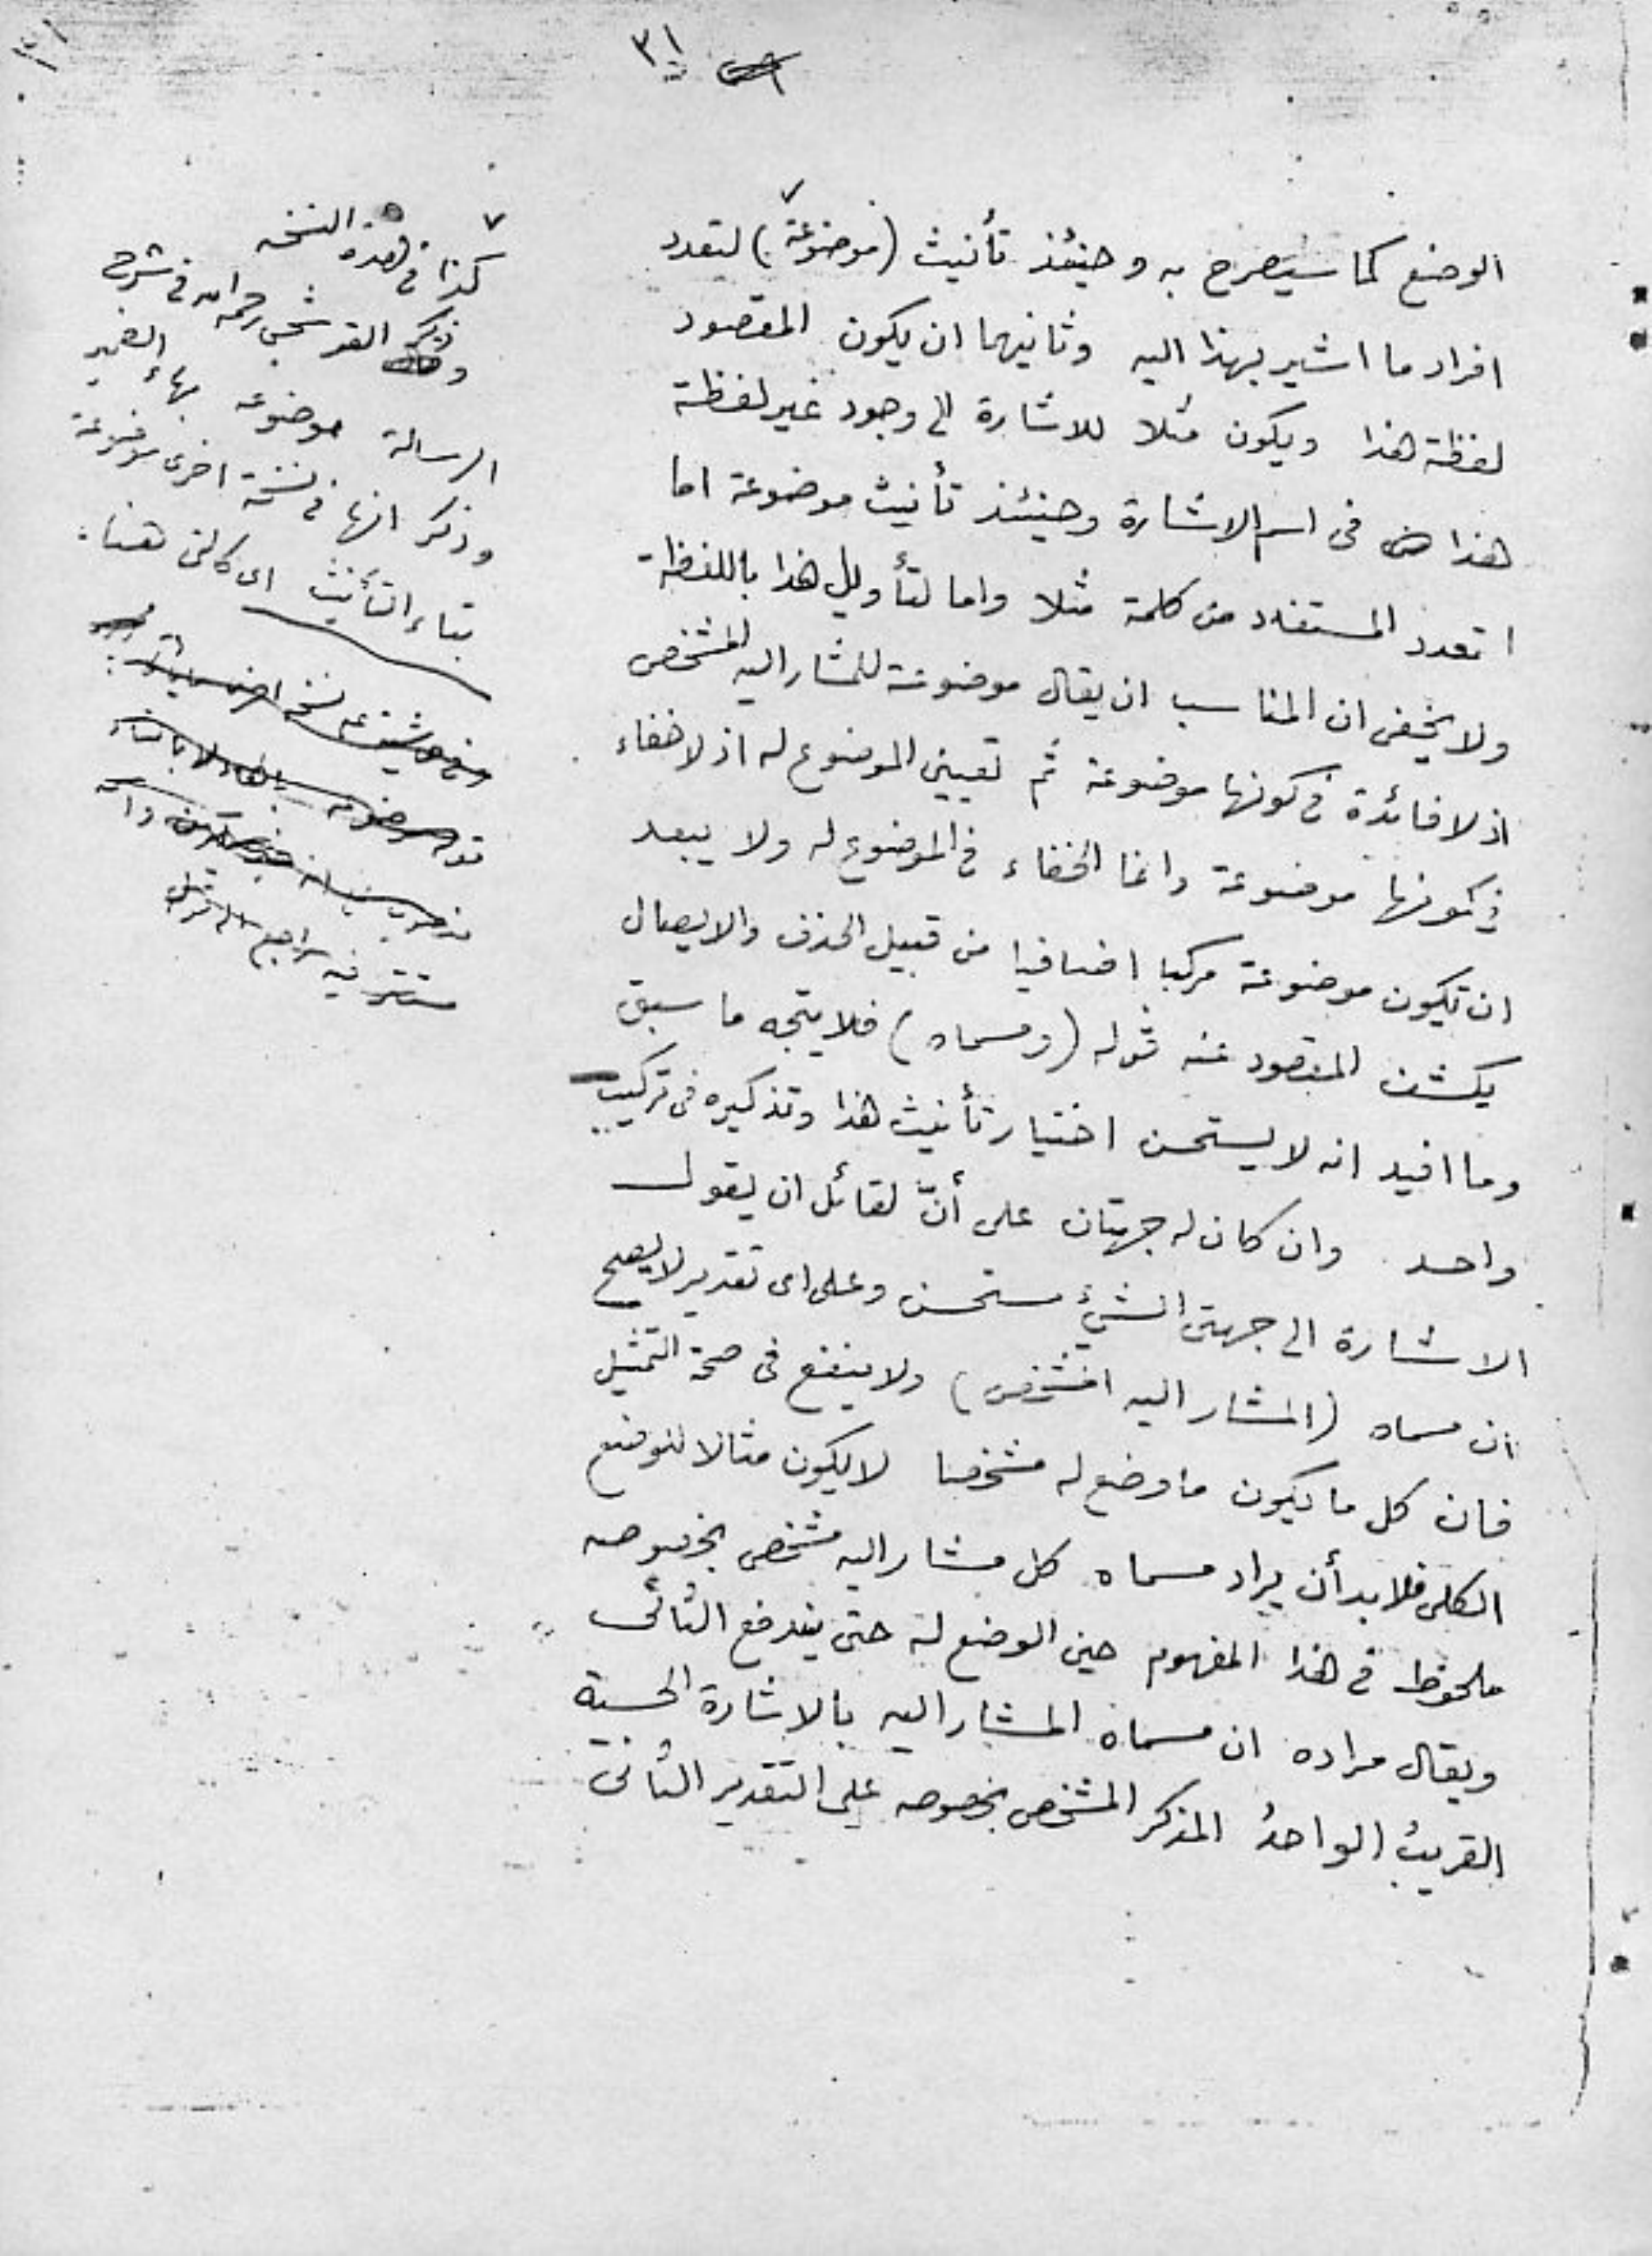 ٣١
الوضع كما سيصرح به وحينئذ تأنيث (موضوعة) لتعدد
افراد ما اشير بهذا اليه وثانيهما ان يكون المقصود
لفظة هذا ويكون مثلا للاشارة الى وجود غير لفظة
هذا فى اسم الاشارة وحينئذ تأنيث موضوعة اما
لتعدد المستفاد من كلمة مثلا واما لتأويل هذا باللفظة
ولا يخفى ان المناسب ان يقال موضوعة للمشار اليه المشخص
اذ لا فائدة فى كونها موضوعة ثم تعيين الموضوع له اذ لا خفاء
فى كونها موضوعة وانما الخفاء فى الموضوع له ولا يبعد
ان تكون موضوعة مركبا اضافيا من قبيل الحذف والايصال
يكشف المقصود عنه قوله (ومسماه) فلا يتجه ما سبق
وما افيد انه لا يستحسن اختيار تأنيث هذا وتذكيره فى تركيب
واحد وان كان له جهتان على أنّ لقائل ان يقول
الاشارة الى جهتى الشئ مستحسن وعلى اى تقدير لا يصح
ان مسماه (المشار اليه المشخص) ولا ينفع فى صحة التمثيل
فان كل ما يكون ما وضع له مشخصا لا يكون مثالا للوضع
الكلى فلا بد أن يراد مسماه كل مشار اليه مشخص بخصوصه
ملحوظ فى هذا المفهوم حين الوضع له حتى يندفع الثانى
ويقال مراده ان مسماه المشار اليه بالاشارة الحسية
القريبُ الواحدُ المذكر المشخص بخصوصه على التقدير الثانى
كذا فى هذه النسخه
وذكر القوشجى رحمه الله فى شرح
الرسالة موضوعه بهاء الضمير
وذكر انها فى نسخة اخرى موضوعة
بتاء التأنيث اى كالتى هنا.